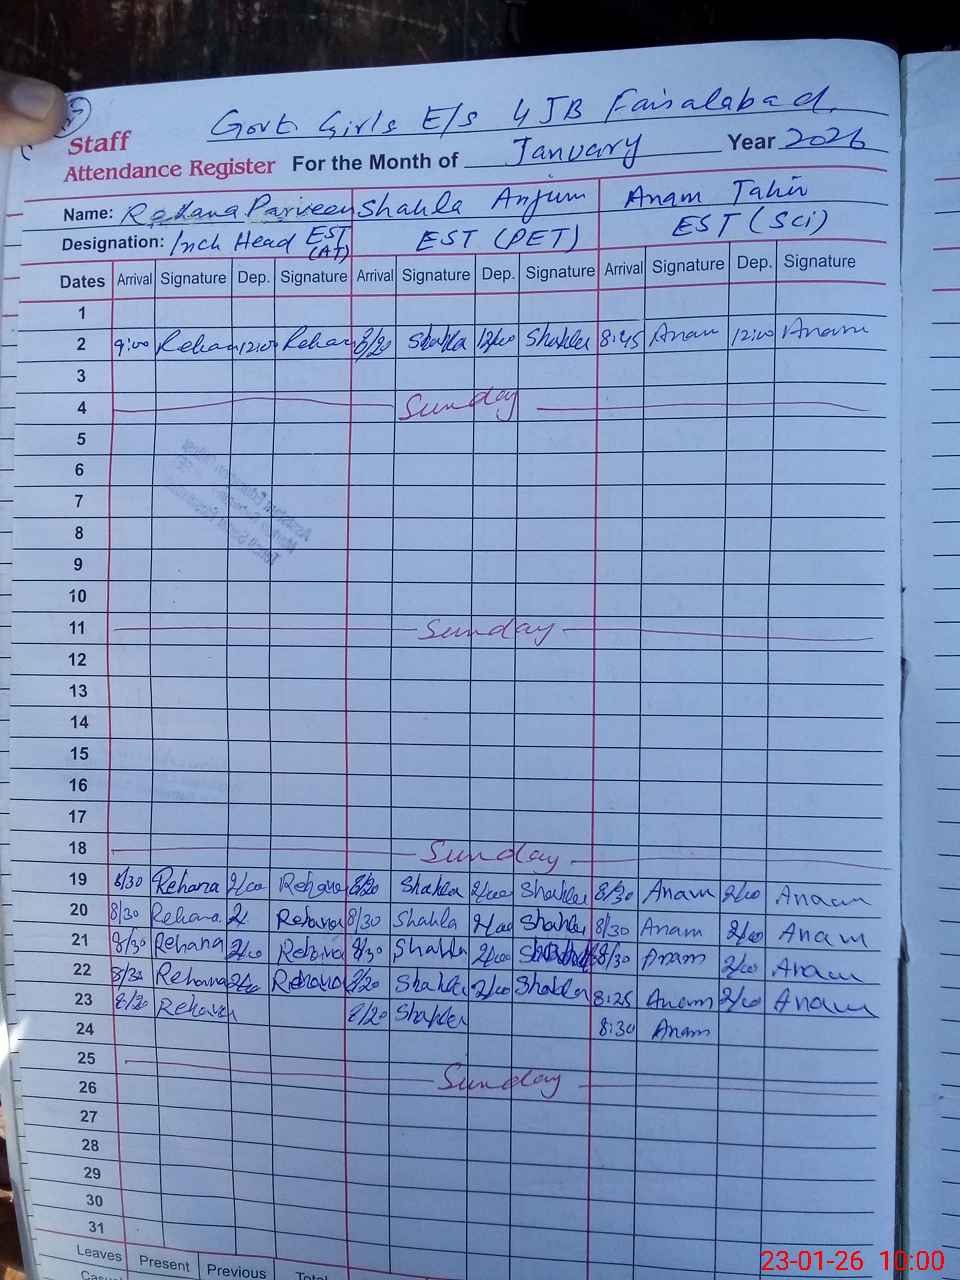 Govt. Girls E/S 4 JB Faisalabad.
Staff
Attendance Register For the Month of January Year 2026
Name: Rehana Parveen Shahla Anjum Anam Tahir
Designation: Inch Head EST (AT) EST (PET) EST (Sci)
Dates Arrival Signature Dep. Signature Arrival Signature Dep. Signature Arrival Signature Dep. Signature
1
2 9:00 Rehan 12:00 Rehan 8/20 Shahla 12/00 Shahla 8:45 Anam 12:00 Anam
3
4 Sunday
5
6
7
8
9
10
11 Sunday
12
13
14
15
16
17
18 Sunday
19 8/30 Rehana 2/00 Rehana 8/20 Shahla 2/00 Shahla 8/30 Anam 2/00 Anam
20 8/30 Rehana 2/ Rehana 8/30 Shahla 2/00 Shahla 8/30 Anam 2/00 Anam
21 8/30 Rehana 2/00 Rehana 8/30 Shahla 2/00 8/30 Anam 2/00 Anam
22 8/30 Rehana 2/00 Rehana 8/20 Shahla 2/00 Shahla 8:25 Anam 2/00 Anam
23 8/20 Rehana 8/20 Shahla 8:30 Anam
24
25 Sunday
26
27
28
29
30
31
Leaves Present Previous Total
Casual
23-01-26 10:00